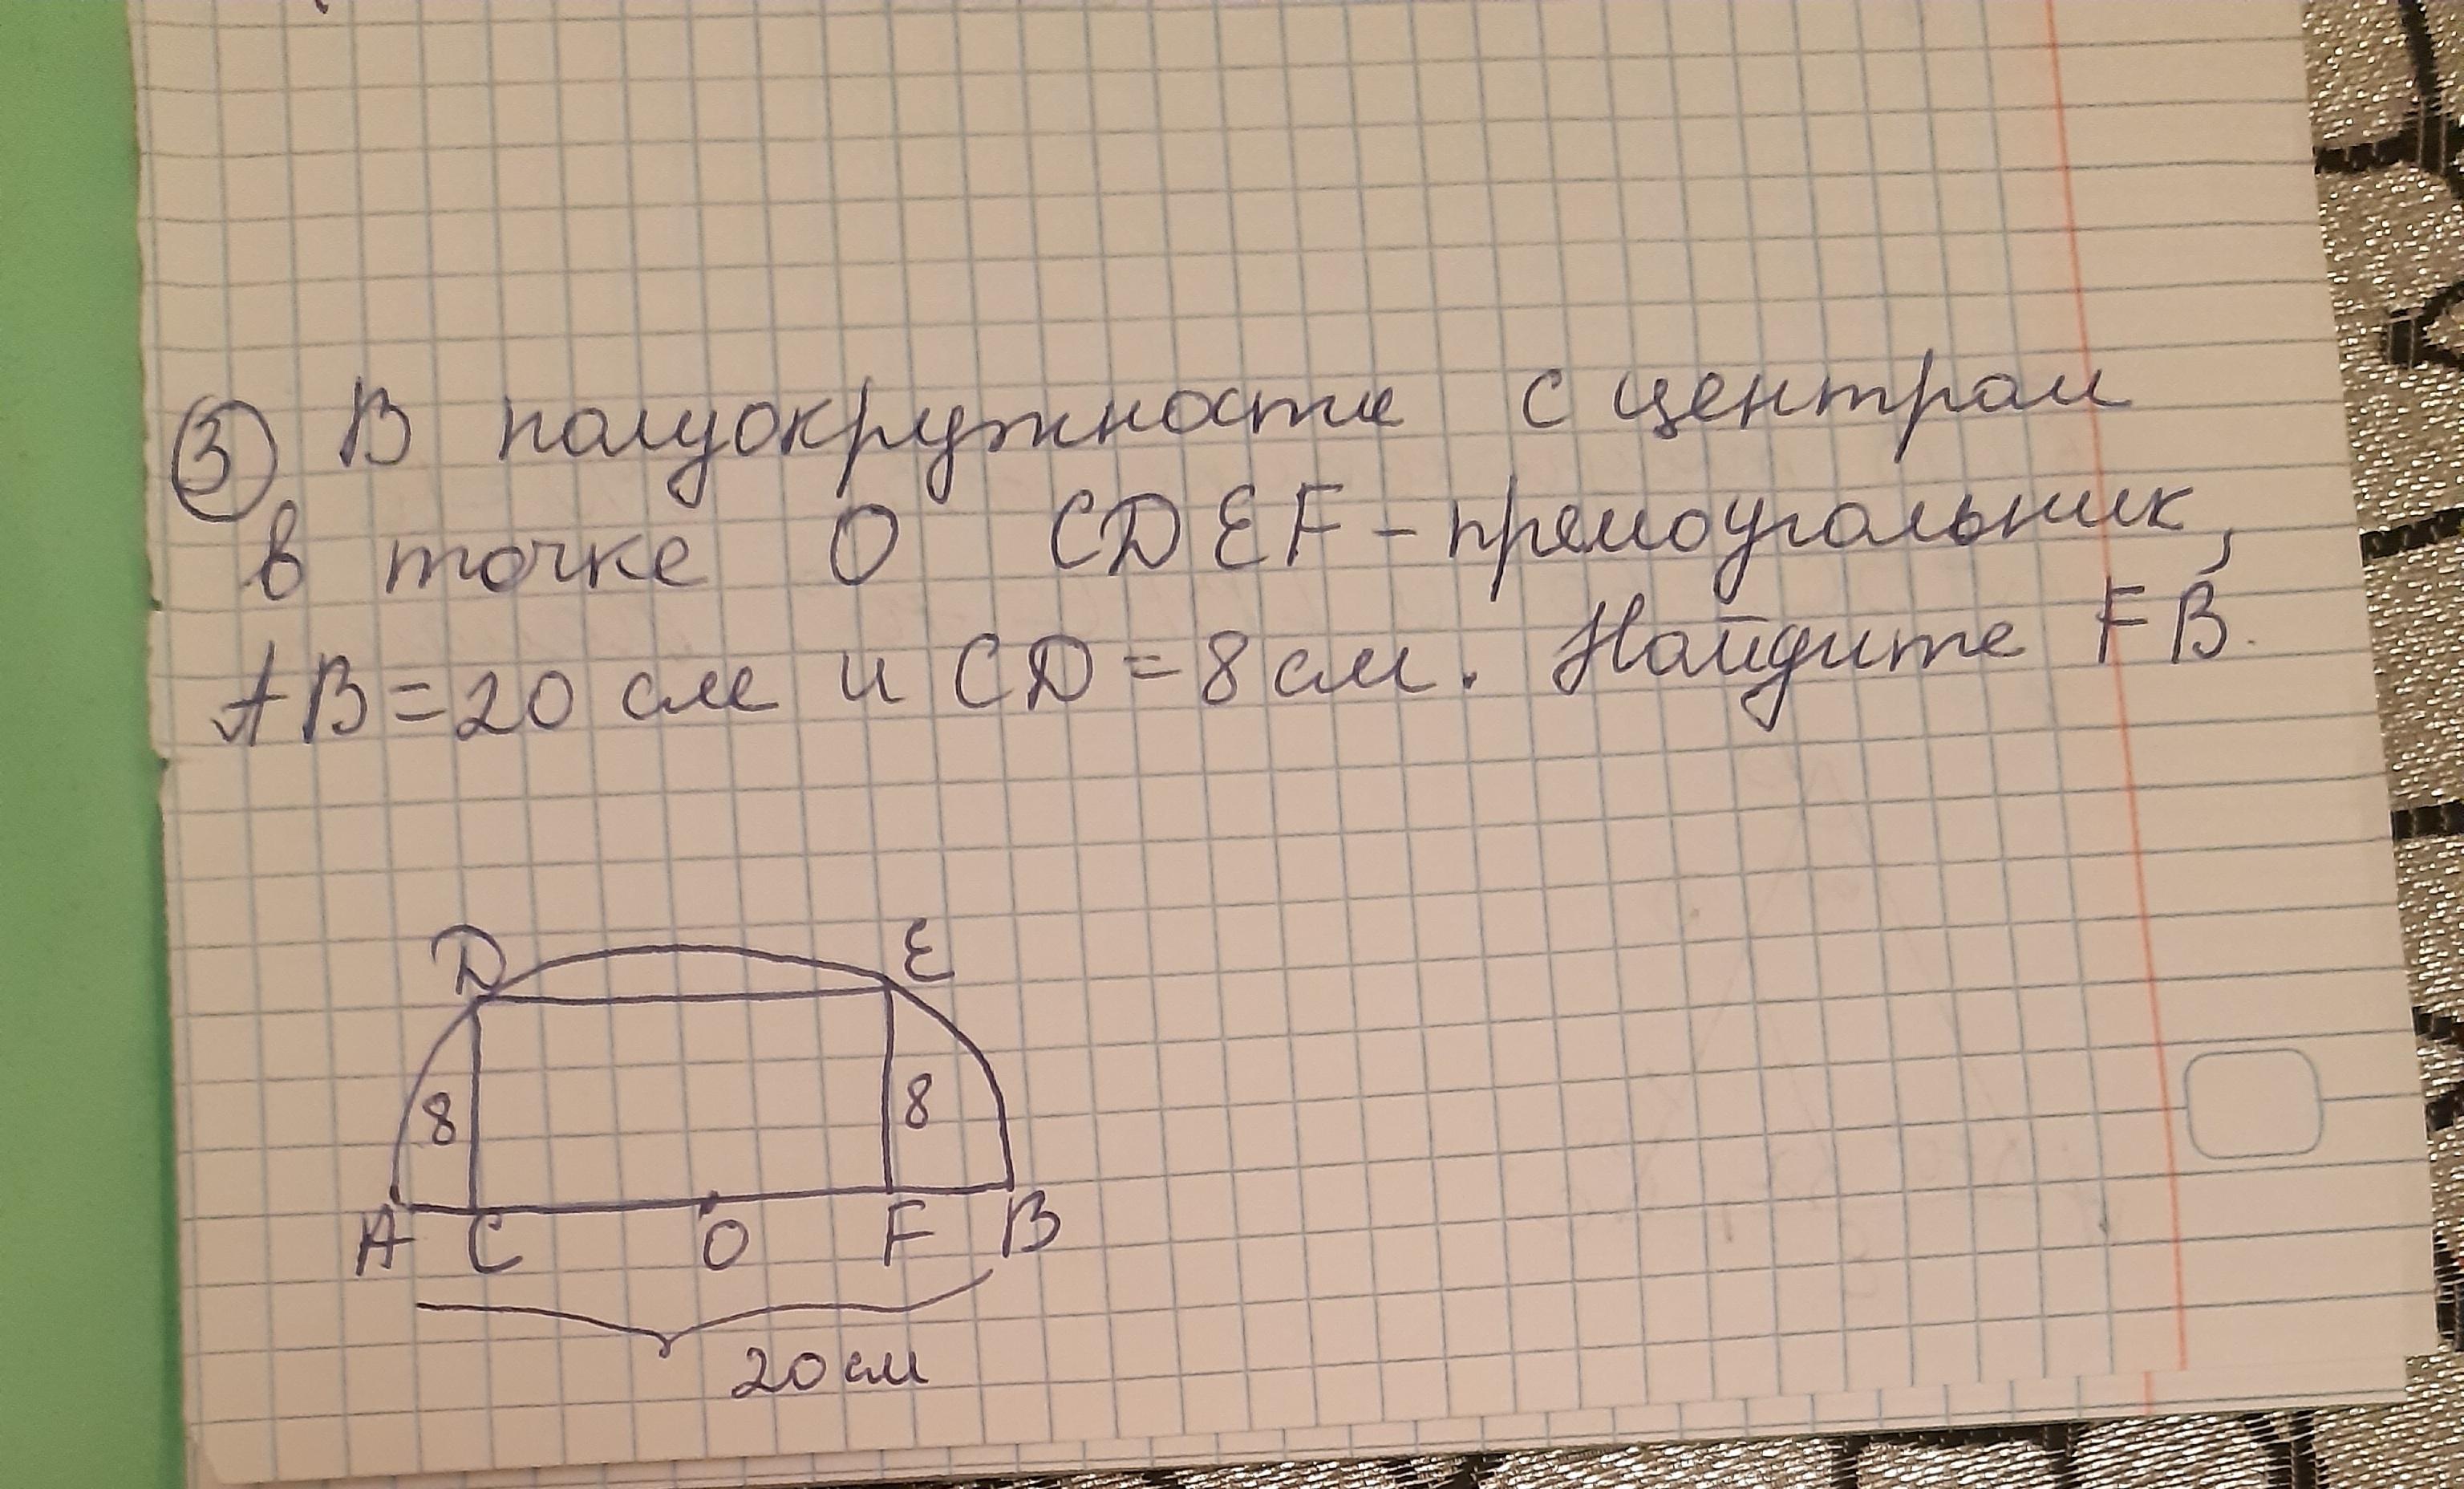 ③ В полуокружности с центром
в точке О CDEF - прямоугольник,
AB = 20 см и CD = 8 см. Найдите FB.
D E
8 8
A C O F B
20 см